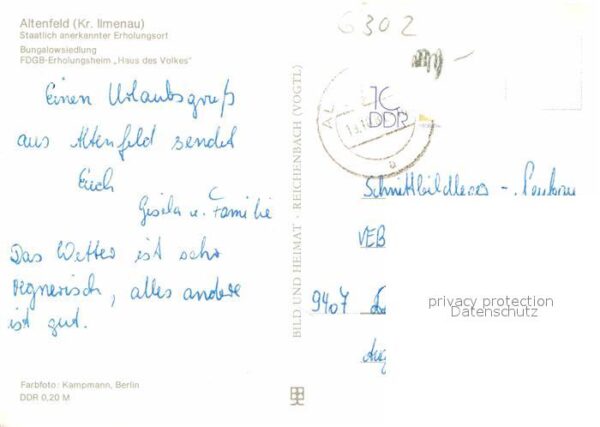 Altenfeld (Kr. Ilmenau)
Staatlich anerkannter Erholungsort
Bungalowsiedlung
FDGB-Erholungsheim „Haus des Volkes"
Einen Urlaubsgruß
aus Altenfeld sendet
Euch
Gisela u. Familie
Das Wetter ist sehr
regnerisch, alles andere
ist gut.
Farbfoto: Kampmann, Berlin
DDR 0,20 M
BILD UND HEIMAT · REICHENBACH (VOGTL)
6302
DDR
VEB
9407
privacy protection
Datenschutz